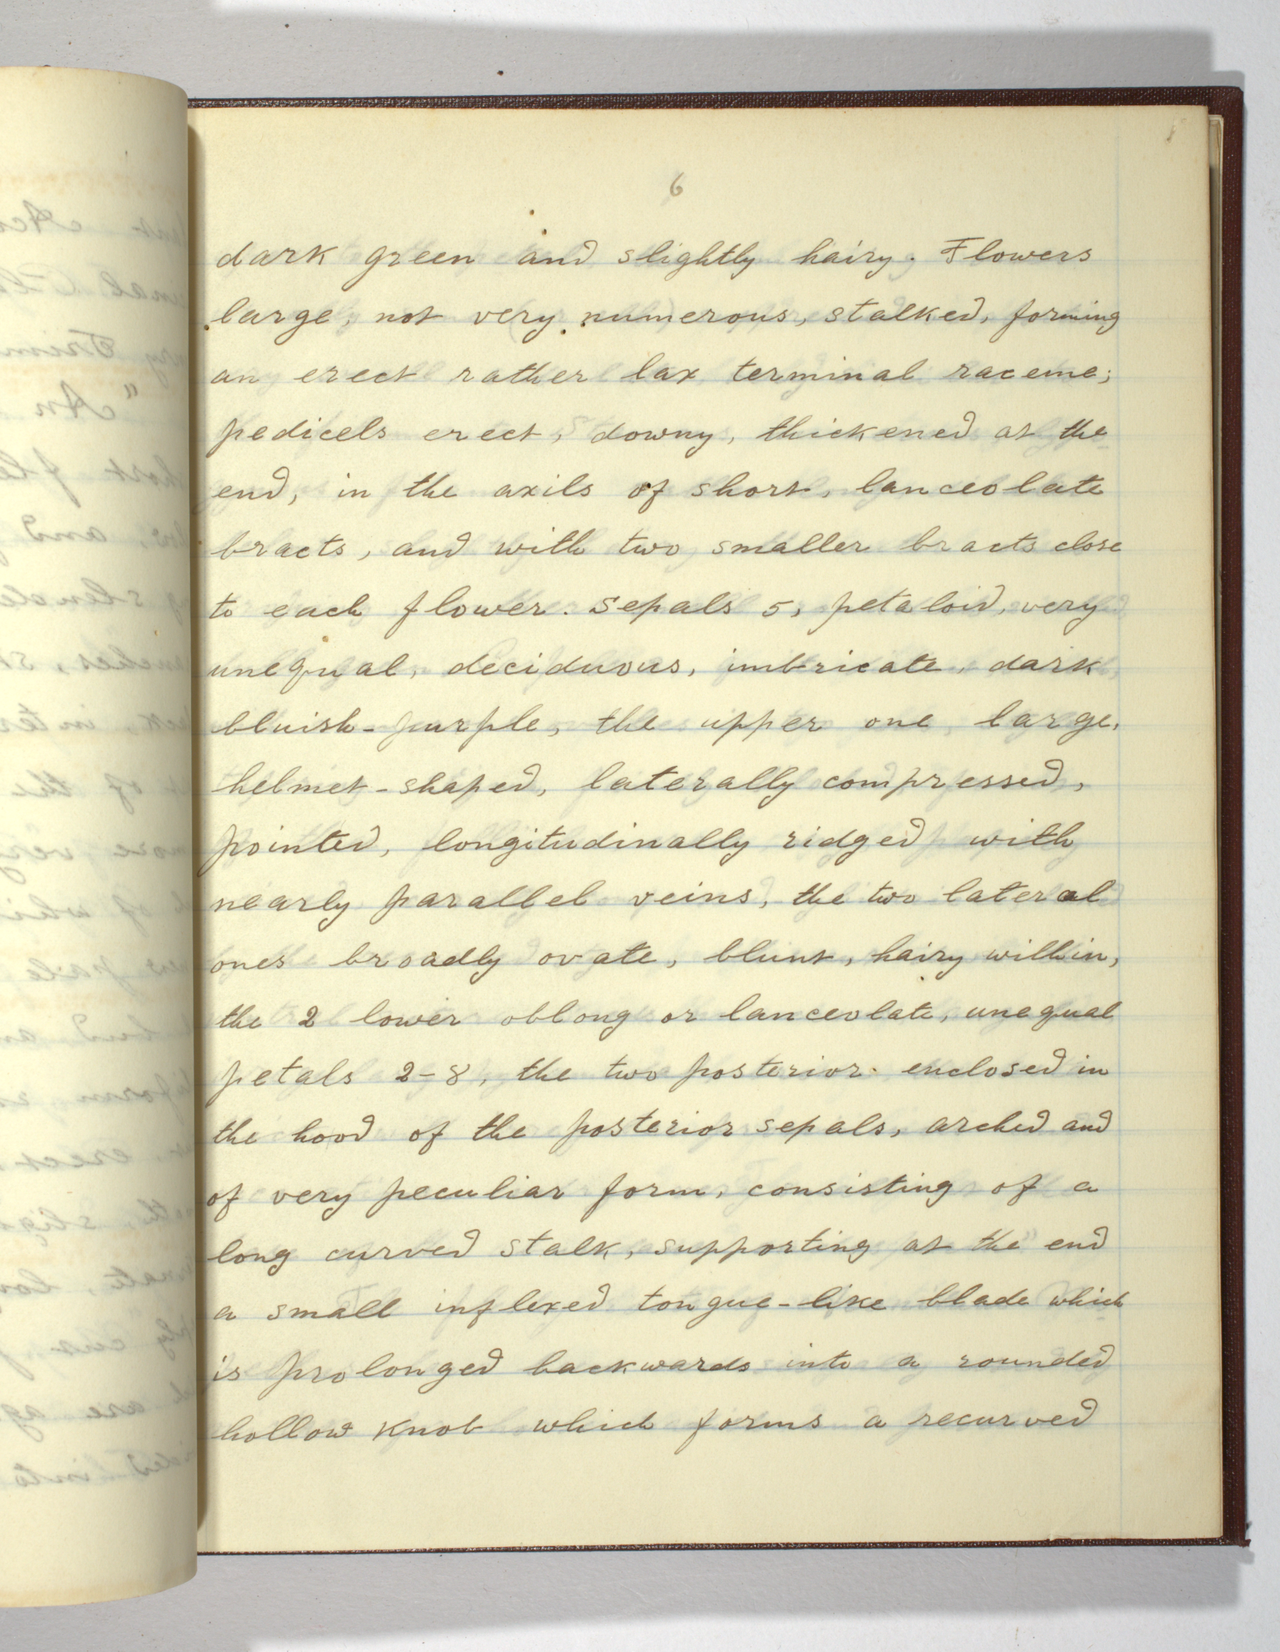 6
dark green and slightly hairy. Flowers
large, not very numerous, stalked, forming
an erect rather lax terminal raceme;
pedicels erect, downy, thickened at the
end, in the axils of short, lanceolate
bracts, and with two smaller bracts close
to each flower. Sepals 5, petaloid, very
unequal, deciduous, imbricate, dark
bluish-purple, the upper one large,
helmet-shaped, laterally compressed,
pointed, longitudinally ridged with
nearly parallel veins, the two lateral
ones broadly ovate, blunt, hairy within,
the 2 lower oblong or lanceolate, unequal
petals 2-8, the two posterior enclosed in
the hood of the posterior sepals, arched and
of very peculiar form, consisting of a
long curved stalk, supporting at the end
a small inflexed tongue-like blade which
is prolonged backwards into a rounded
hollow knob which forms a recurved